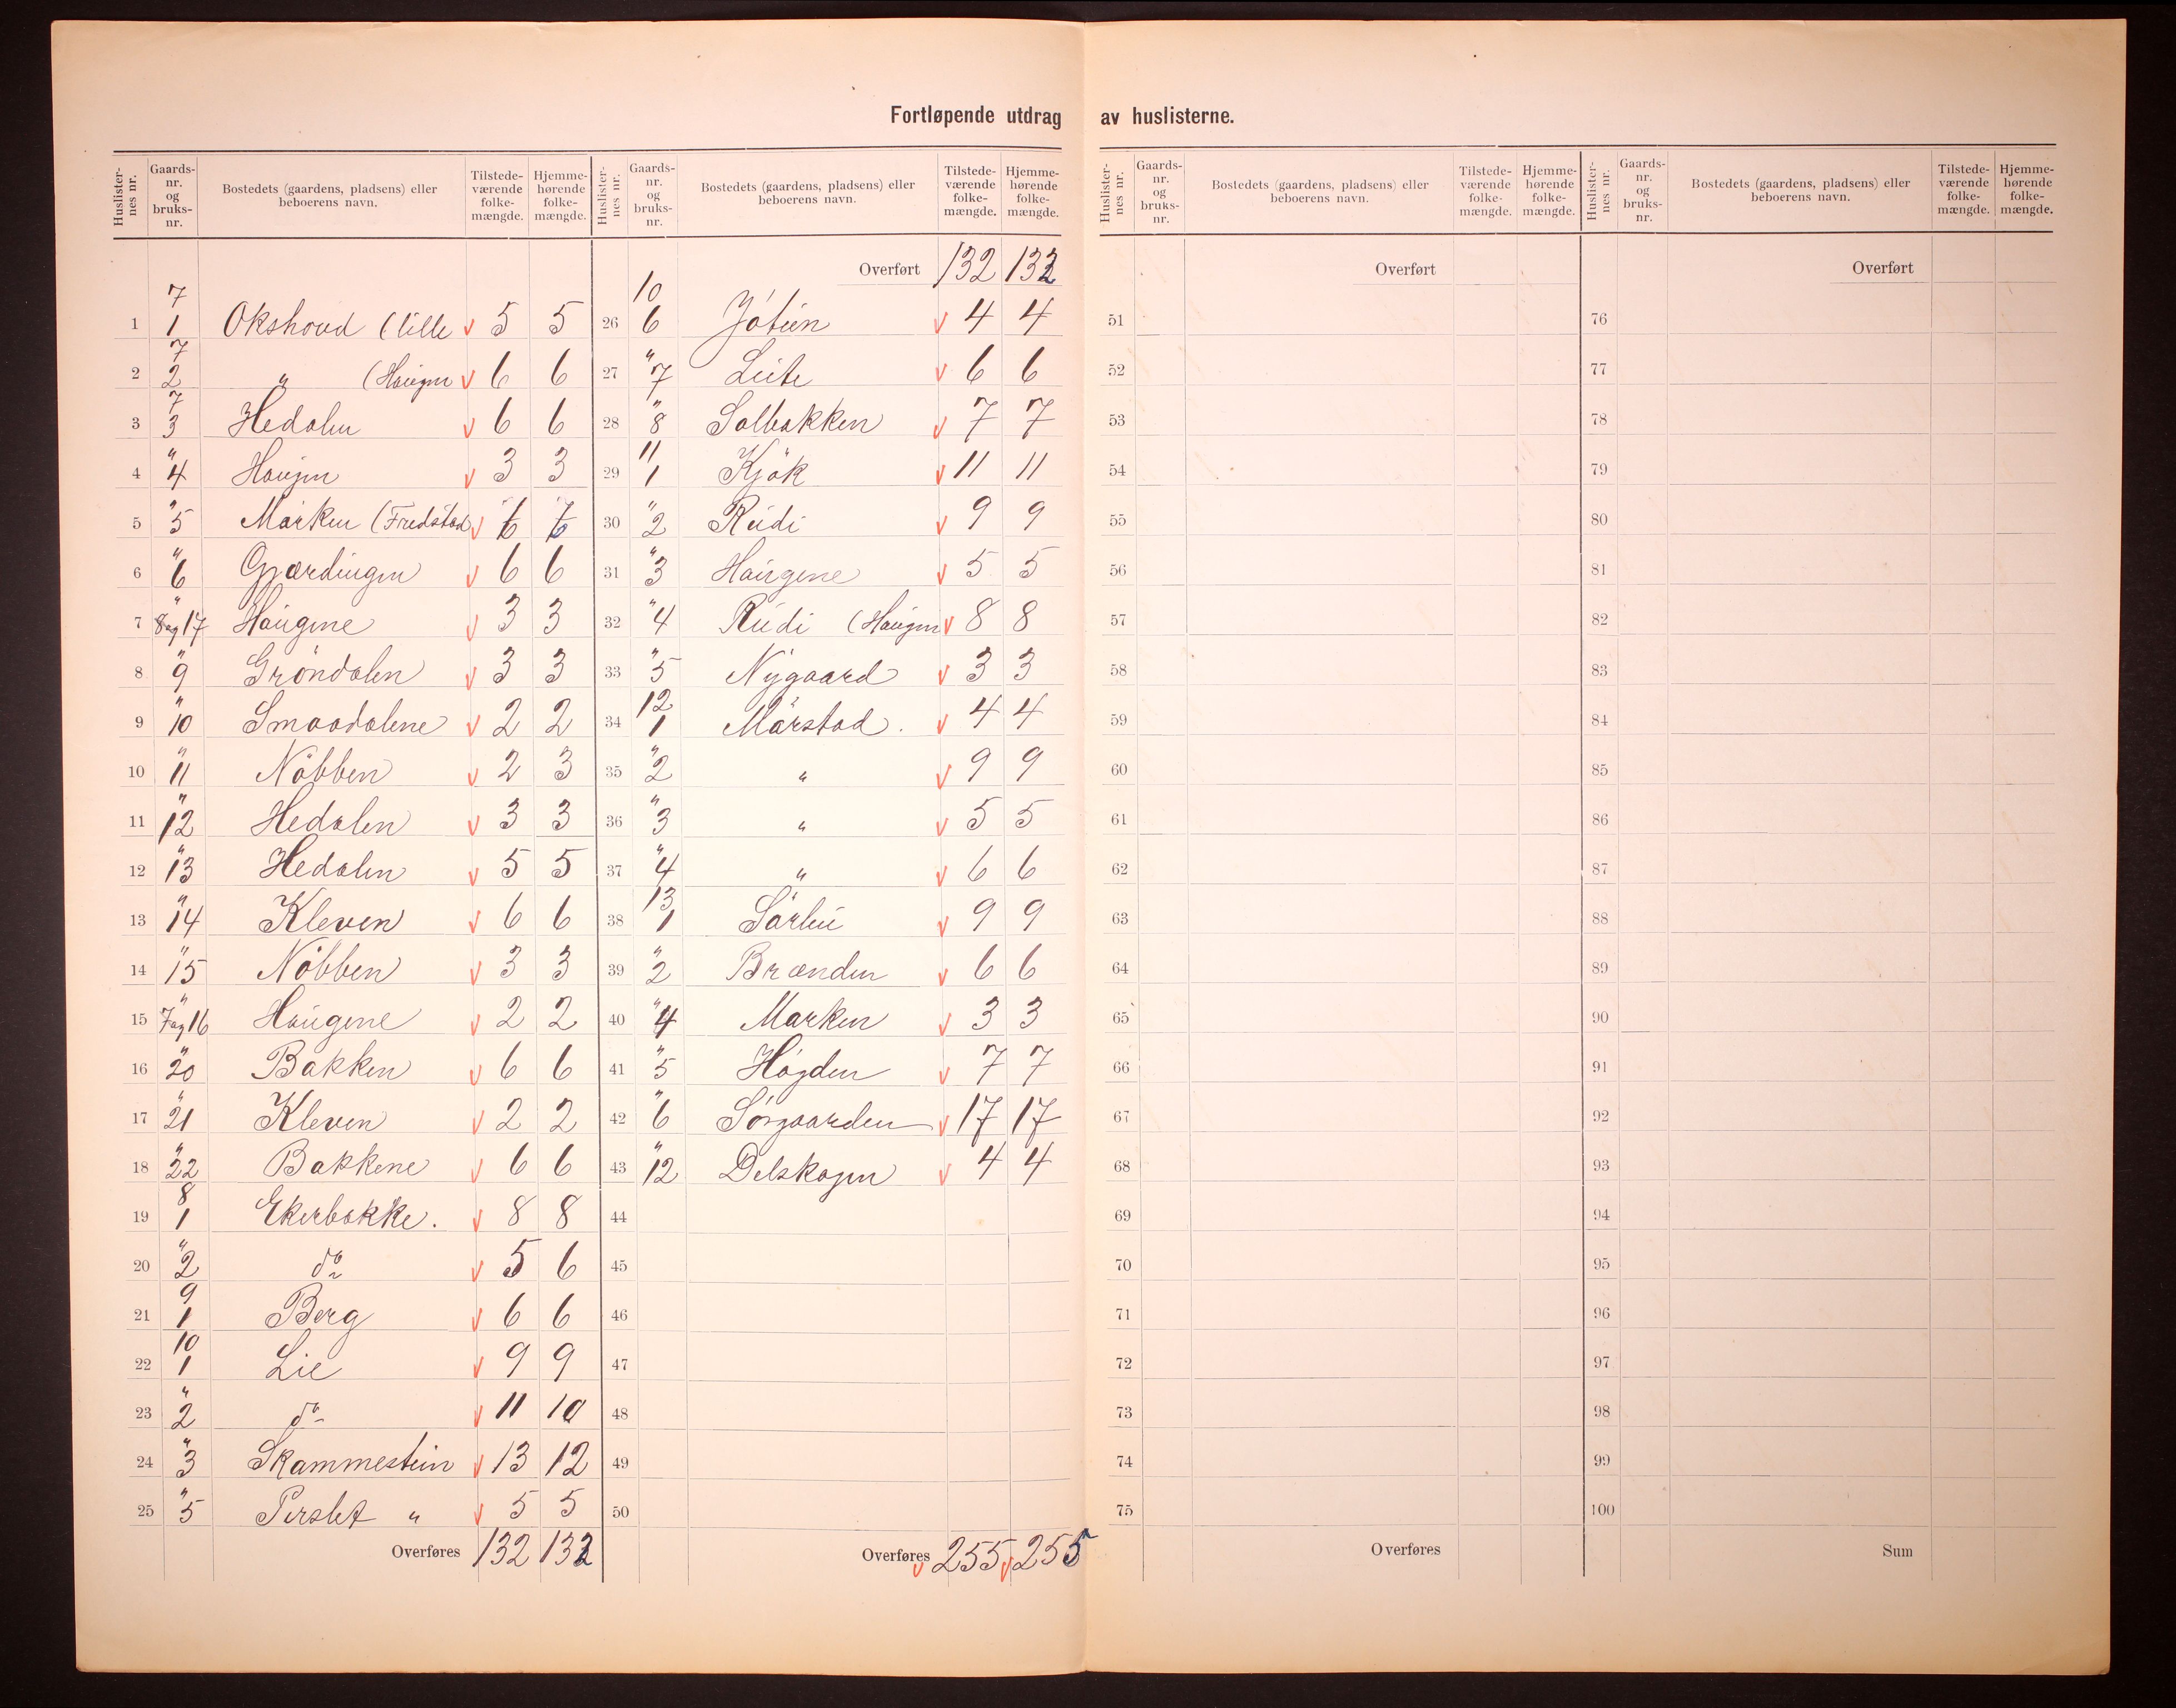 Fortløpende utdrag av huslisterne.
Huslister-nes nr. Gaards-nr. og bruks-nr. Bostedets (gaardens, pladsens) eller beboerens navn. Tilstede-værende folke-mængde. Hjemme-hørende folke-mængde.
1 7 1 Okshovd (lille 5 5
2 7 2 " (Haugen 6 6
3 7 3 Hedalen 6 6
4 " 4 Haugen 3 3
5 " 5 Marken (Fredstad
6 " 6 Gjærdingen 6 6
7 " 8 og 17 Haugene 3 3
8 " 9 Gröndalen 3 3
9 " 10 Smaadalene 2 2
10 " 11 Nöbben 2 3
11 " 12 Hedalen 3 3
12 " 13 Hedalen 5 5
13 " 14 Kleven 6 6
14 " 15 Nöbben 3 3
15 " 7 og 16 Haugene 2 2
16 " 20 Bakken 6 6
17 " 21 Kleven 2 2
18 " 22 Bakkene 6 6
19 8 1 Ekerbakke. 8 8
20 " 2 do 5 6
21 9 1 Berg 6 6
22 10 1 Lie 9 9
23 " 2 do 11 10
24 " 3 Skammestein 13 12
25 " 5 Perslet " 5 5
Overføres 132 132
Huslister-nes nr. Gaards-nr. og bruks-nr. Bostedets (gaardens, pladsens) eller beboerens navn. Tilstede-værende folke-mængde. Hjemme-hørende folke-mængde.
Overført 132 132
26 10 6 Jötun 4 4
27 " 7 Leite 6 6
28 " 8 Solbakken 7 7
29 11 1 Kjök 11 11
30 " 2 Rudi 9 9
31 " 3 Haugene 5 5
32 " 4 Rudi (Haugen 8 8
33 " 5 Nygaard 3 3
34 12 1 Mörstad. 4 4
35 " 2 " 9 9
36 " 3 " 5 5
37 " 4 " 6 6
38 13 1 Sörlie 9 9
39 " 2 Brænden 6 6
40 " 4 Marken 3 3
41 " 5 Högden 7 7
42 " 6 Sørgaarden 17 17
43 " 12 Delskogen 4 4
44
45
46
47
48
49
50
Overføres 255 255
Huslister-nes nr. Gaards-nr. og bruks-nr. Bostedets (gaardens, pladsens) eller beboerens navn. Tilstede-værende folke-mængde. Hjemme-hørende folke-mængde.
Overført
51
52
53
54
55
56
57
58
59
60
61
62
63
64
65
66
67
68
69
70
71
72
73
74
75
Overføres
Huslister-nes nr. Gaards-nr. og bruks-nr. Bostedets (gaardens, pladsens) eller beboerens navn. Tilstede-værende folke-mængde. Hjemme-hørende folke-mængde.
Overført
76
77
78
79
80
81
82
83
84
85
86
87
88
89
90
91
92
93
94
95
96
97
98
99
100
Sum